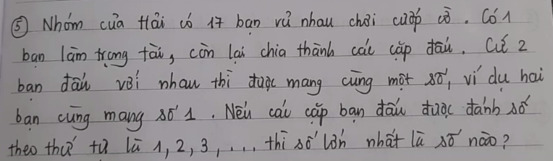 ⑤ Nhóm của Hải có 17 bạn rủ nhau chơi cướp cờ. Có 1
bạn làm trọng tài, còn lại chia thành các cặp đấu. Cứ 2
bạn đấu với nhau thì được mang cùng một số, ví dụ hai
bạn cùng mang số 1. Nếu các cặp bạn đấu được đánh số
theo thứ tự là 1, 2, 3, ... thì số lớn nhất là số nào?